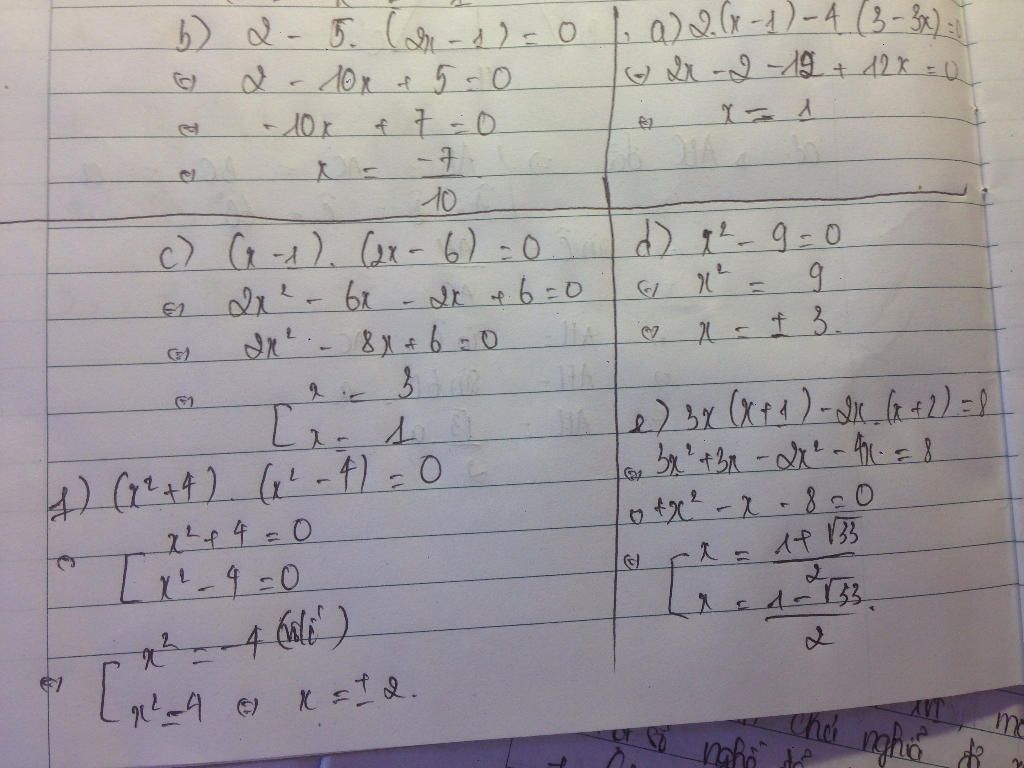 b) 2 - 5. (2x - 1) = 0
⇔ 2 - 10x + 5 = 0
⇔ -10x + 7 = 0
⇔ x = -7/10
a) 2.(x - 1) - 4.(3 - 3x) = 0
⇔ 2x - 2 - 12 + 12x = 0
⇔ x = 1
c) (x - 1). (2x - 6) = 0
⇔ 2x² - 6x - 2x + 6 = 0
⇔ 2x² - 8x + 6 = 0
⇔ [ x = 3
x = 1
d) x² - 9 = 0
⇔ x² = 9
⇔ x = ± 3.
e) 3x (x + 1) - 2x (x + 2) = 8
⇔ 3x² + 3x - 2x² - 4x = 8
⇔ +x² - x - 8 = 0
⇔ [ x = (1 + √33)/2
x = (1 - √33)/2.
f) (x² + 4). (x² - 4) = 0
⇔ [ x² + 4 = 0
x² - 4 = 0
⇔ [ x² = -4 (vôlí)
x² = 4 ⇔ x = ± 2.
chới nghiô đ
nghô đô